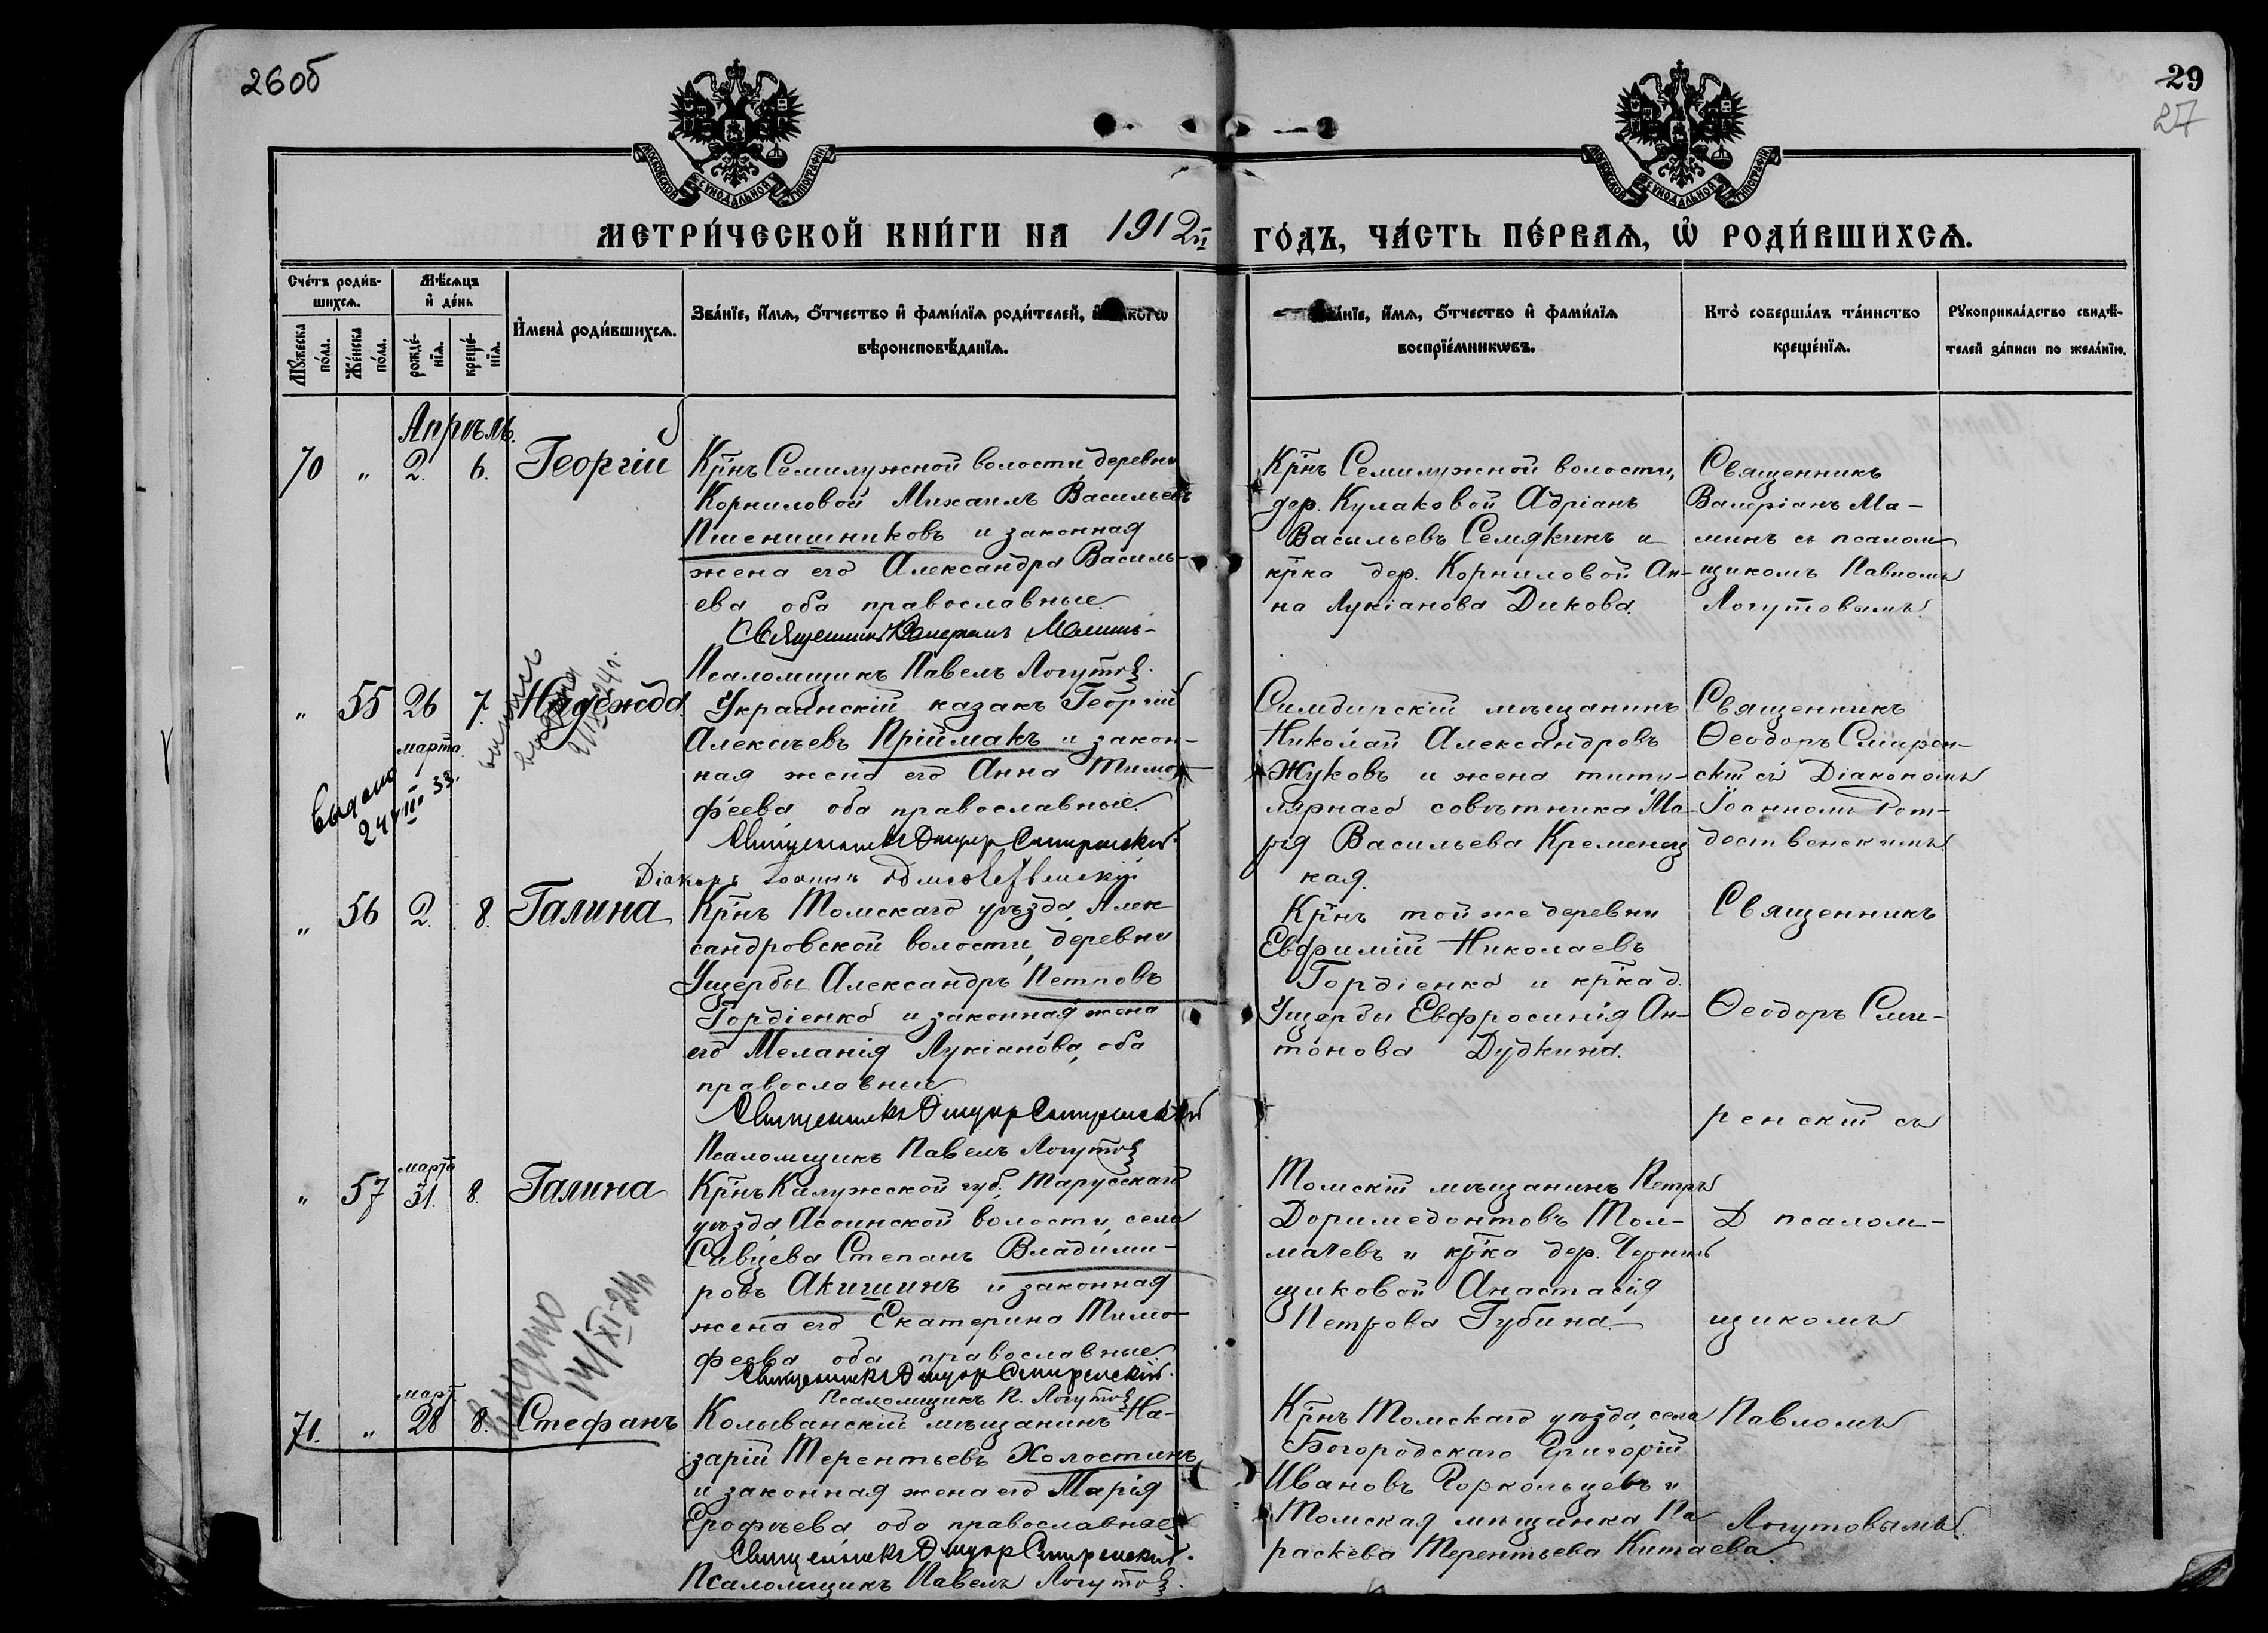 26об
29
27
МОСКОВСКОЙ СѴНОДАЛЬНОЙ ТИПОГРАФІИ
МОСКОВСКОЙ СѴНОДАЛЬНОЙ ТИПОГРАФІИ
МЕТРИ́ЧЕСКОЙ КНИ́ГИ НА 1912й ГО́ДЪ, ЧА́СТЬ ПЕ́РВАѦ, Ѡ҆ РОДИ́ВШИХСѦ.
Сче́тъ роди́в-
шихсѧ.
Мѹ́жеска
по́ла.
Же́нска
по́ла.
Мѣ́сѧцъ
и҆ де́нь
рожде́-
нїѧ.
креще́-
нїѧ.
И҆мена̀ роди́вшихсѧ.
Зва́нїе, и҆́мѧ, ѻ҆́тчество и҆ фами́лїѧ роди́телей, и҆
вѣроисповѣ́данїѧ.
Зва́нїе, и҆́мѧ, ѻ҆́тчество и҆ фами́лїѧ
воспрїе́мникѡвъ.
Кто̀ соверша́лъ та́инство
креще́нїѧ.
Рѹкоприкла́дство свидѣ́-
телей за́писи по жела́нїю.
Апрѣль.
70 " 2. 6. Георгій
Кр̃нъ Семилужной волости деревни
Корниловой Михаилъ Васильевъ
Пшенишниковъ и законная
жена его Александра Василь-
ева оба православные.
Священникъ Валеріанъ Маминъ
Псаломщикъ Павелъ Логутов
Кр̃нъ Семилужной волости,
дер. Кулаковой Адріанъ
Васильевъ Семякинъ и
кр̃ка дер. Корниловой Ан-
на Лукіанова Дикова.
Священникъ
Валеріанъ Ма-
минъ съ псалом
щикомъ Павломъ
Логутовымъ.
" 55 26 марта. 7. Надежда.
выдано
24/III 33.
Украинскій казакъ Георгій
Алексѣевъ Пріймакъ и закон-
ная жена его Анна Тимо-
феева, оба православные.
Священникъ Ѳеодоръ Смиренскій.
Діаконъ Іоаннъ Рождественскій
Симбирскій мѣщанинъ
Николай Александровъ
Жуковъ и жена титу-
лярнаго совѣтника Ма-
рія Васильева Кременец
кая.
Священникъ
Ѳеодоръ Смирен-
скій съ Діакономъ
Іоанномъ Рож-
дественскимъ.
" 56 2. 8. Галина
Кр̃нъ Томскаго уѣзда, Алек
сандровской волости, деревни
Ущербы Александръ Петровъ
Гордіенко и законная жена
его Меланія Лукіанова, оба
православные
Священникъ Ѳеодоръ Смиренскій
Псаломщикъ Павелъ Логутов
Кр̃нъ той же деревни
Евфимій Николаевъ
Гордіенко и кр̃ка д.
Ущербы Евфросинія Ан-
тонова Дудкина.
Священникъ
Ѳеодоръ Сми-
ренскій съ
" 57 марта 31. 8. Галина
Кр̃нъ Калужской губ., Тарусскаго
уѣзда, Асоинской волости, села
Сивцева Степанъ Владими-
ровъ Акишинъ и законная
жена его Екатерина Тимо-
феева оба православные
Священникъ Ѳеодоръ Смиренскій.
Псаломщикъ П. Логутов
Томскій мѣщанинъ Петръ
Доримедонтовъ Тол-
мачевъ и кр̃ка дер.
щиковой Анастасія
Петрова Губина.
псалом-
щикомъ
выдано
14/XI-24г.
71. " март. 28 8. Стефанъ
Колыванскій мѣщанинъ На-
зарій Терентьевъ Холостинъ
и законная жена его Марія
Ерофѣева оба православные
Священникъ Ѳеодоръ Смиренскій.
Псаломщикъ Павелъ Логутов.
Кр̃нъ Томскаго уѣзда, села
Богородскаго Григорій
Ивановъ и
Томская мѣщанка Па
раскева Терентьева Китаева.
Павломъ
Логутовымъ.